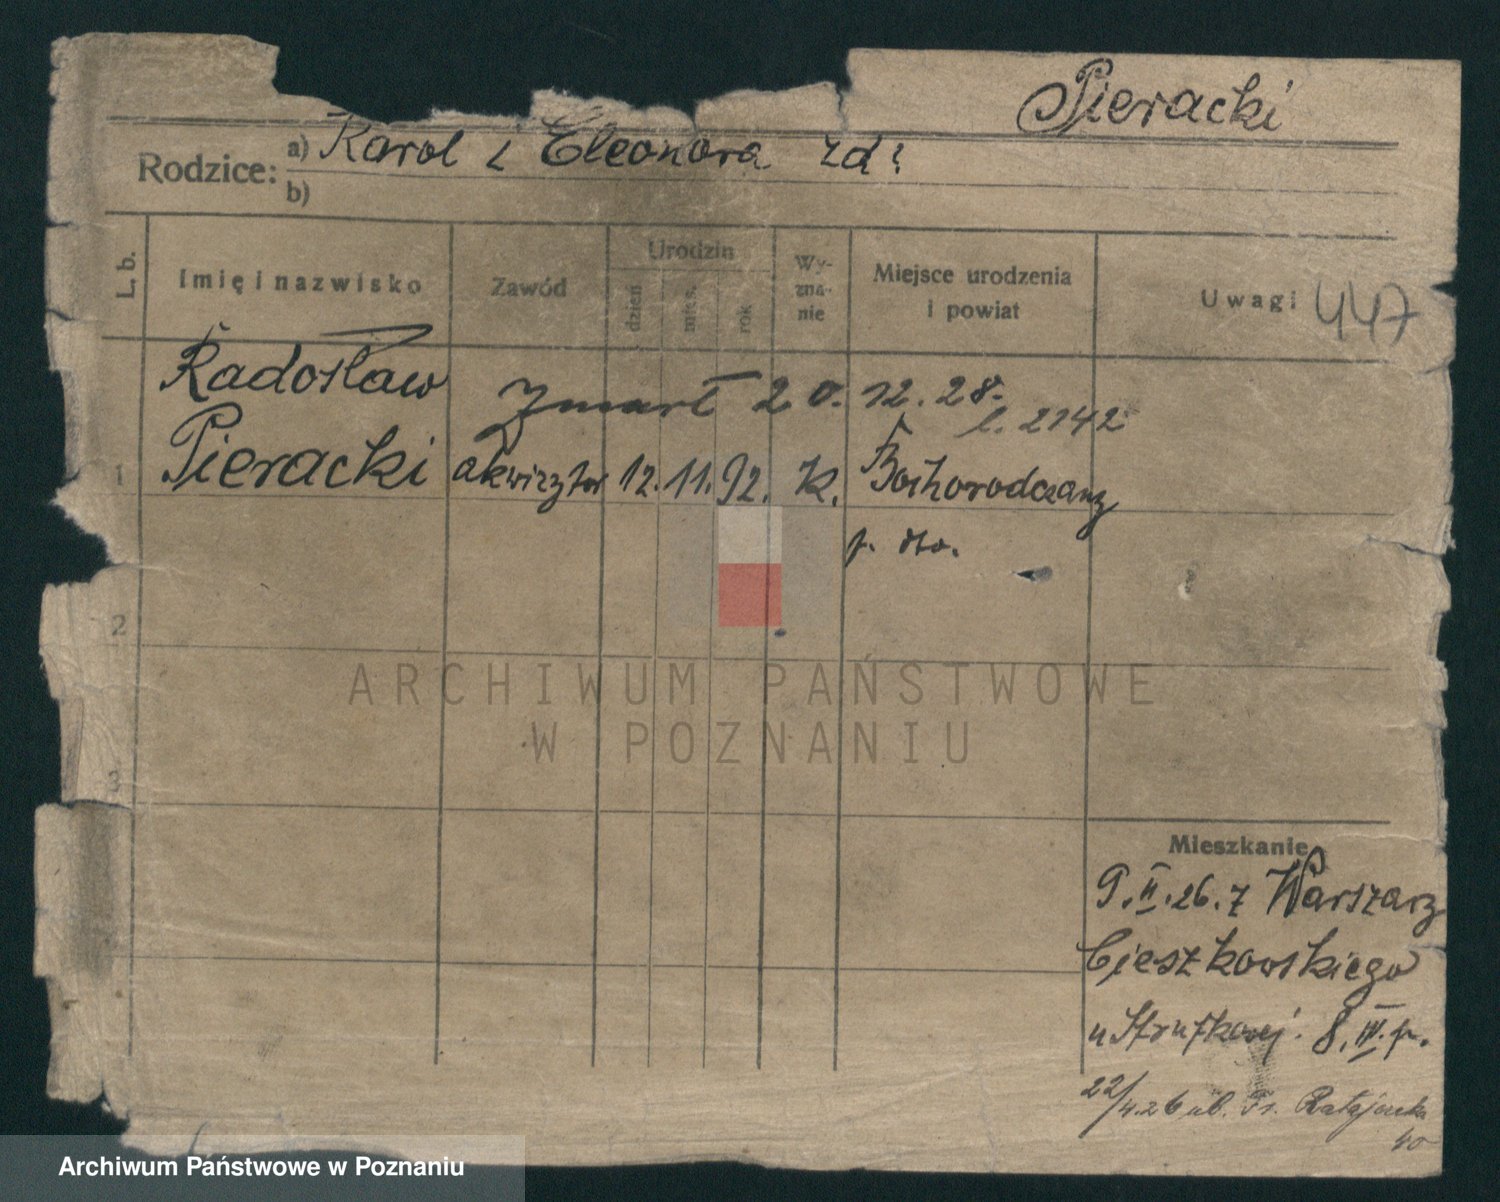 Pieracki
Rodzice: a) Karol i Eleonora zd?
b)
L. b. Imię i nazwisko Zawód Urodzin dzień mies. rok Wy-zna-nie Miejsce urodzenia i powiat Uwagi 447
Radosław Zmarł 20.12.28.
l. 2142
1 Pieracki akwizytor 12. 11. 92. k. Bohorodczany
p. dto.
2
3
Mieszkanie
9.II.26. z Warszawy
Cieszkowskiego
u 8, III. p.
22/4.26 ul. Fr. Ratajczaka
40
ARCHIWUM PAŃSTWOWE
W POZNANIU
Archiwum Państwowe w Poznaniu